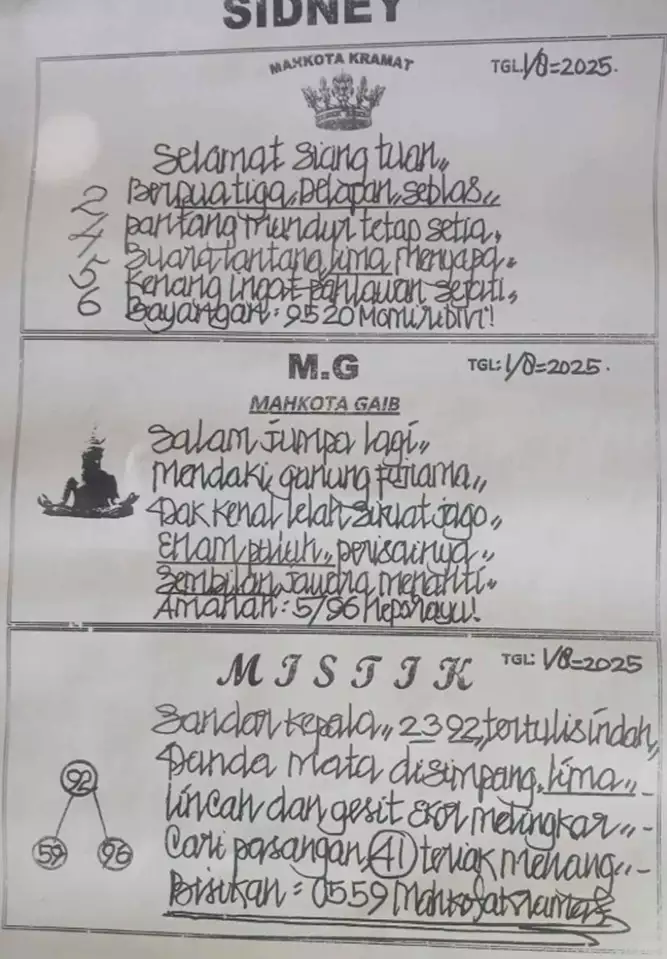 SIDNEY
MAHKOTA KRAMAT
TGL. 1/8=2025.
Selamat siang tuan,,
2 Berpua tiga,, Delapan,, seblas,,
4 pantang mundur tetap setia,
5 Suara lantang lima menyapa.
6 Kenang ingat pahlawan sejati,
Bayangan: 9520
M.G
TGL: 1/8=2025.
MAHKOTA GAIB
Salam jumpa lagi,,
Mendaki gunung
Tak kenal lelah sikuat jago,,
Enam puluh,, perisainya,,
Sembilan jawara menanti.
Amanah: 5/96
MISTIK
TGL: 1/8=2025
Sandar kepala,, 2392, tertulis indah,
Tanda mata disimpang, lima,,-
lincah dan gesit ekor melingkar,,-
92
59 96
Cari pasangan (41) teriak menang,,-
Bisikan = 0559 Mahkota